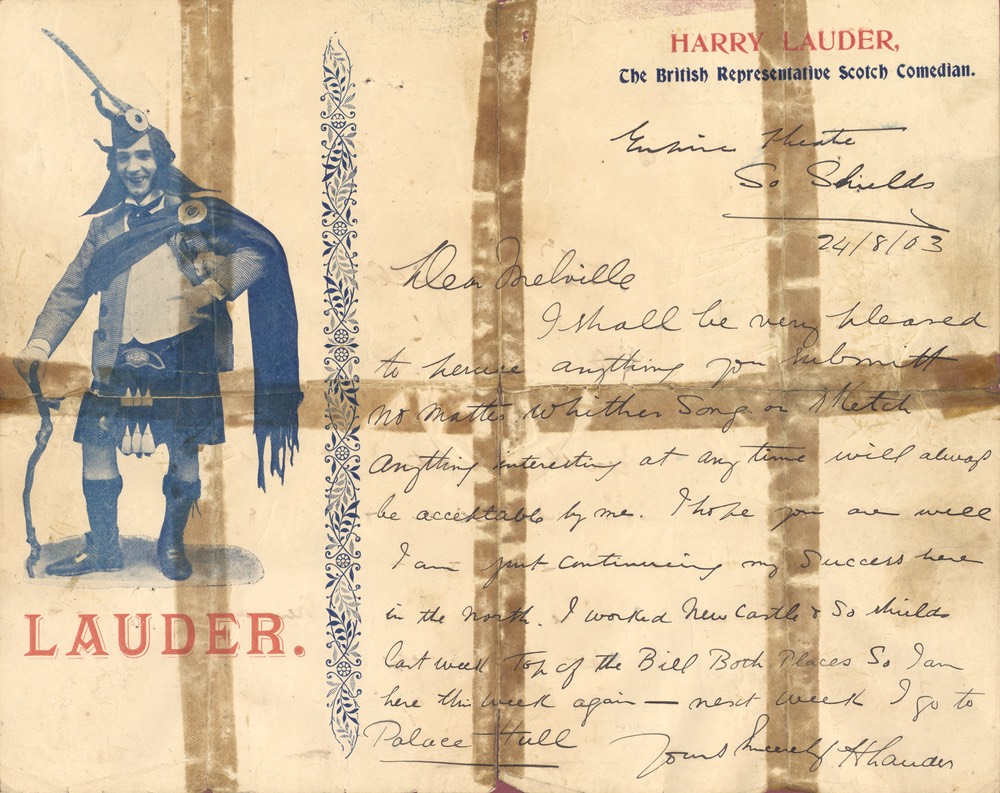 HARRY LAUDER,
The British Representative Scotch Comedian.
Empire Theatre
So Shields
24/8/03
Dear Melville
I shall be very pleased
to peruse anything you Submitt
no matter whither Song or Sketch
Anything interesting at any time will always
be acceptable by me. I hope you are well
I am just Continuing my Success here
in the North. I worked New Castle & So Shields
last week Top of the Bill Both Places So I am
here this week again — next week I go to
Palace Hull
Yours Sincerely HLauder
LAUDER.